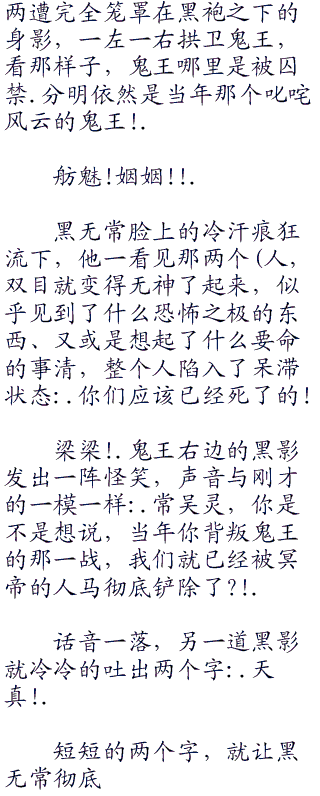 两遭完全笼罩在黑袍之下的
身影，一左一右拱卫鬼王，
看那样子，鬼王哪里是被囚
禁.分明依然是当年那个叱咤
风云的鬼王!.
舫魅!姻姻!!.
黑无常脸上的冷汗痕狂
流下，他一看见那两个(人，
双目就变得无神了起来，似
乎见到了什么恐怖之极的东
西、又或是想起了什么要命
的事清，整个人陷入了呆滞
状态:.你们应该已经死了的!
梁梁!.鬼王右边的黑影
发出一阵怪笑，声音与刚才
的一模一样:.常吴灵，你是
不是想说，当年你背叛鬼王
的那一战，我们就已经被冥
帝的人马彻底铲除了?!.
话音一落，另一道黑影
就冷冷的吐出两个字:.天
真!.
短短的两个字，就让黑
无常彻底